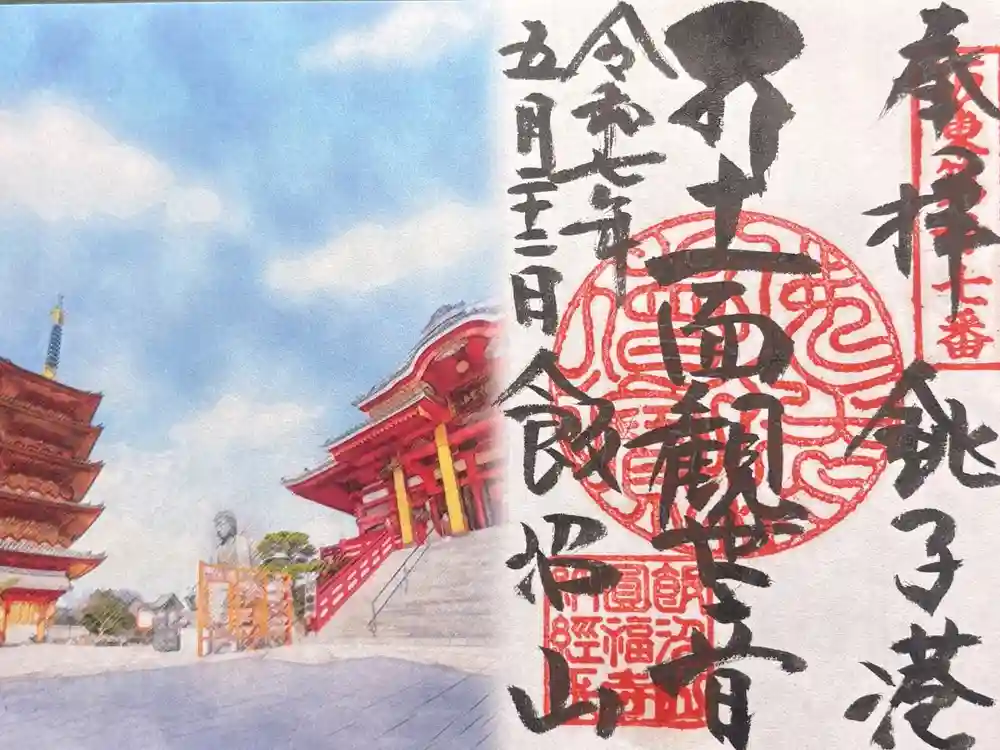 奉拝 銚子港
坂東第廿七番
十一面観世音
令和七年
五月二十二日
飯沼山
飯沼山
圓福寺
納經印